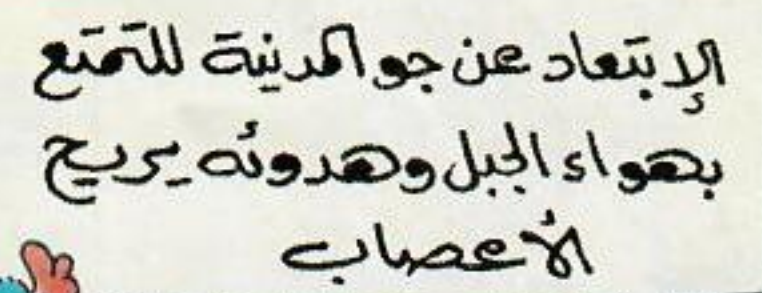 الإبتعاد عن جو المدينة للتمتع
بهواء الجبل وهدوئه يريح
الأعصاب